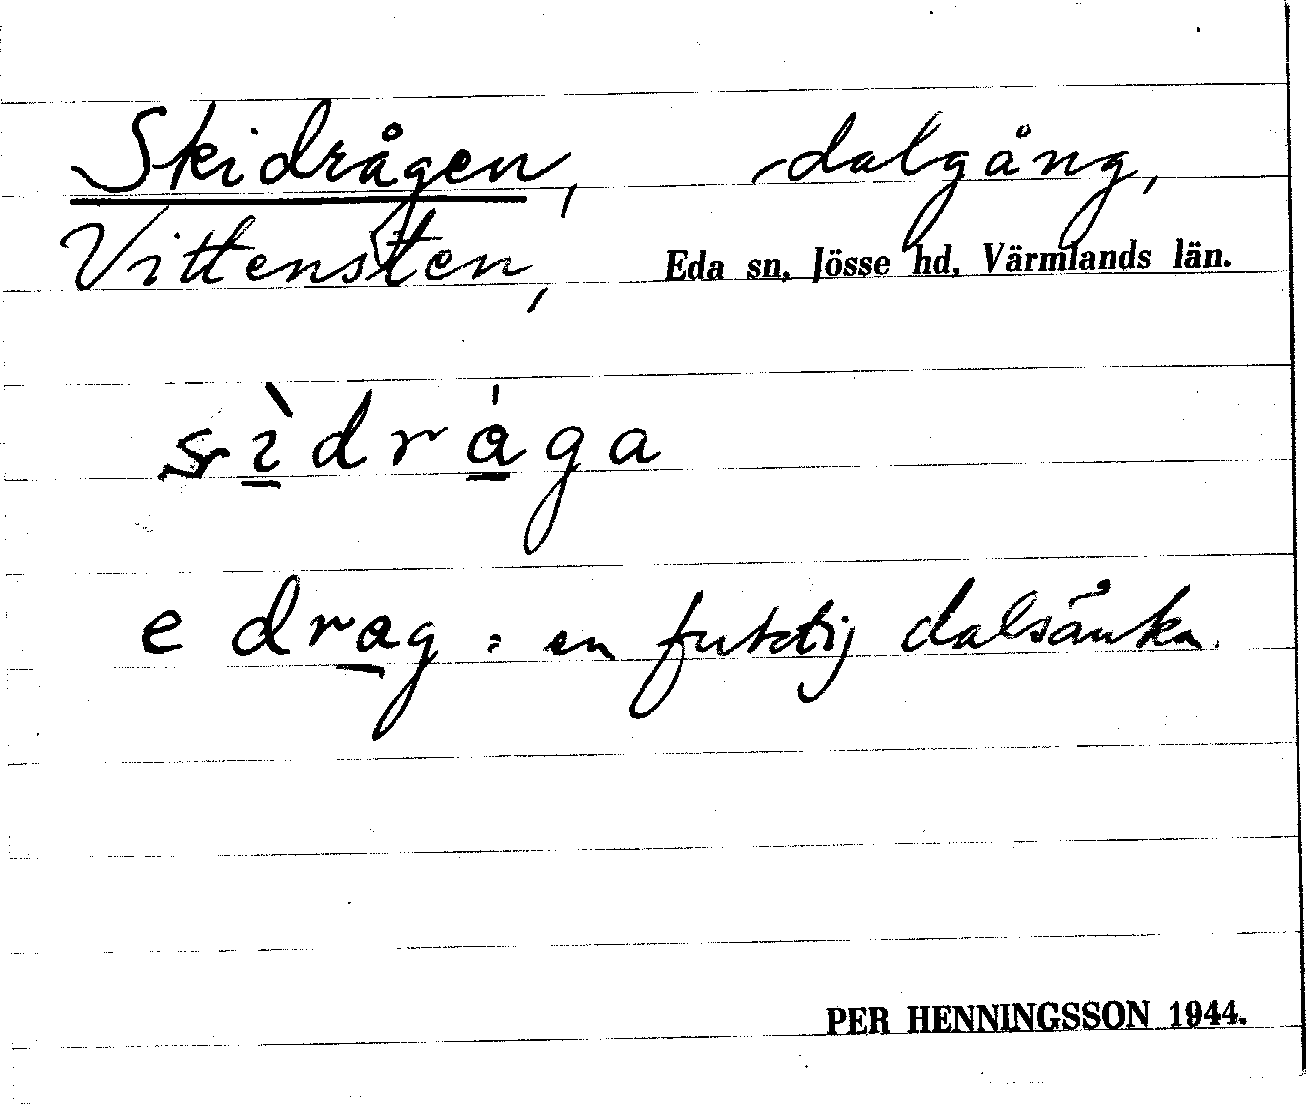 Skidrågen, dalgång,
Vittensten, Eda sn, Jösse hd, Värmlands län.
sìdråga
e drag = en fuktig dalsänka.
PER HENNINGSSON 1944.